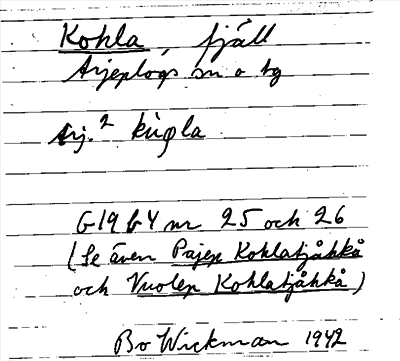 Kohla, fjäll
Arjeplogs sn o tg
Arj.2 kùǫla
G19 b4 nr 25 och 26
(Se även Pajep Kohlatjåhkå
och Vuolep Kohlatjåhkå)
Bo Wickman 1942